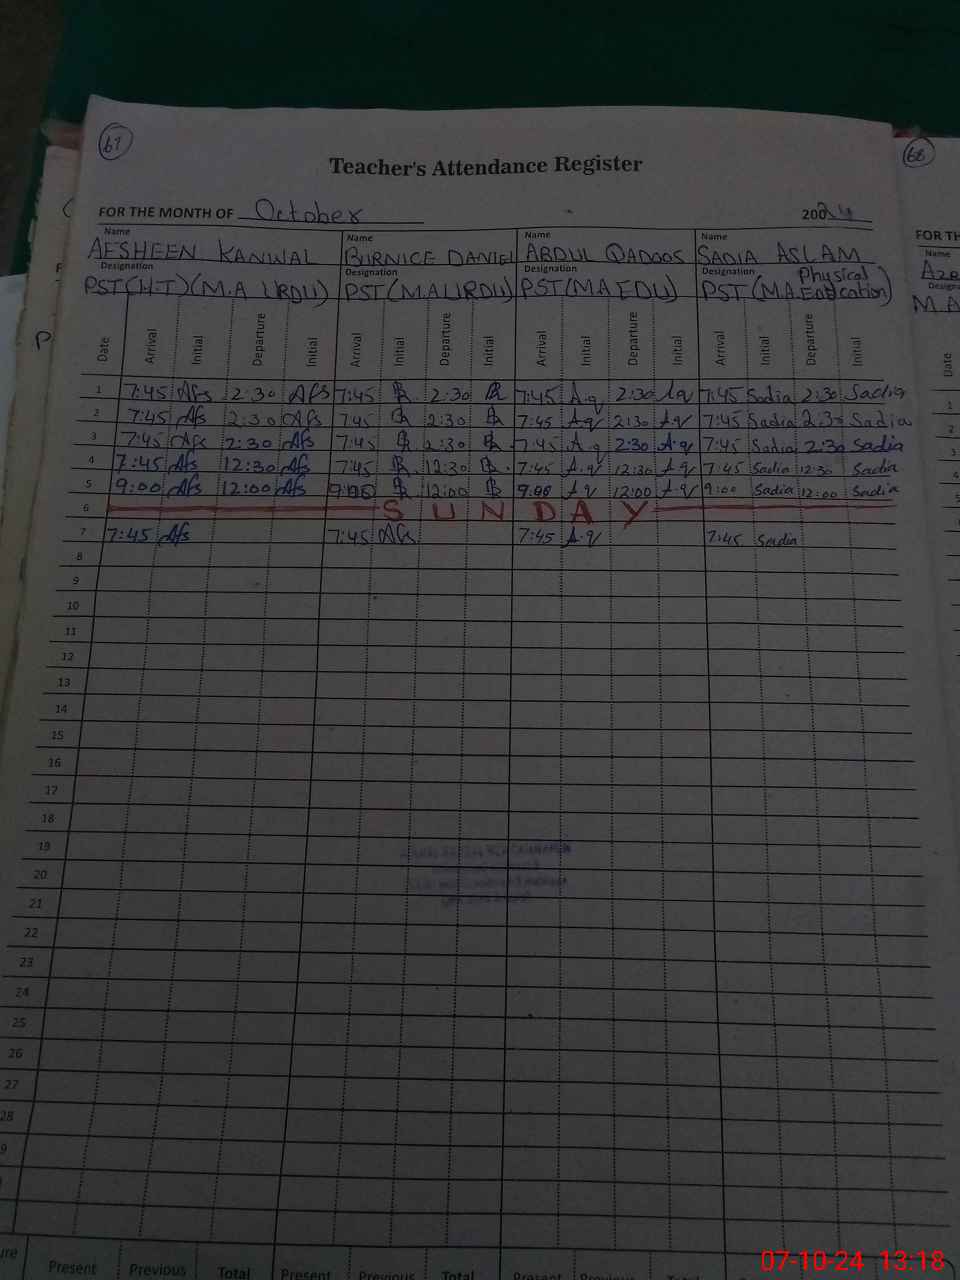 67
68
Teacher's Attendance Register
FOR THE MONTH OF October 20024
FOR TH
Name Name Name Name Name
AFSHEEN KANWAL BURNICE DANIEL ABDUL QADOOS SADIA ASLAM Aze
Designation Designation Designation Designation
PST(H.T)(M.A URDU) PST(M.A URDU) PST(MA EDU) PST (MA Physical Education) M.A
Date Arrival Initial Departure Initial Arrival Initial Departure Initial Arrival Initial Departure Initial Arrival Initial Departure Initial Date
1 7:45 Afs 2:30 Afs 7:45 B 2:30 B 7:45 A.q 2:30 A.q 7:45 Sadia 2:30 Sadia 1
2 7:45 Afs 2:30 Afs 7:45 B 2:30 B 7:45 A.q 2:30 A.q 7:45 Sadia 2:30 Sadia 2
3 7:45 Afs 2:30 Afs 7:45 B 2:30 B 7:45 A.q 2:30 A.q 7:45 Sadia 2:30 Sadia 3
4 7:45 Afs 12:30 Afs 7:45 B 12:30 B 7:45 A.q 12:30 A.q 7:45 Sadia 12:30 Sadia
5 9:00 Afs 12:00 Afs 9:00 B 12:00 B 9:00 A.q 12:00 A.q 9:00 Sadia 12:00 Sadia
6 SUNDAY
7 7:45 Afs 7:45 Afs 7:45 A.q 7:45 Sadia
8
9
10
11
12
13
14
15
16
17
18
19
20
21
22
23
24
25
26
27
28
9
Present Previous Total Present Previous Total Present Previous Total
07-10-24 13:18